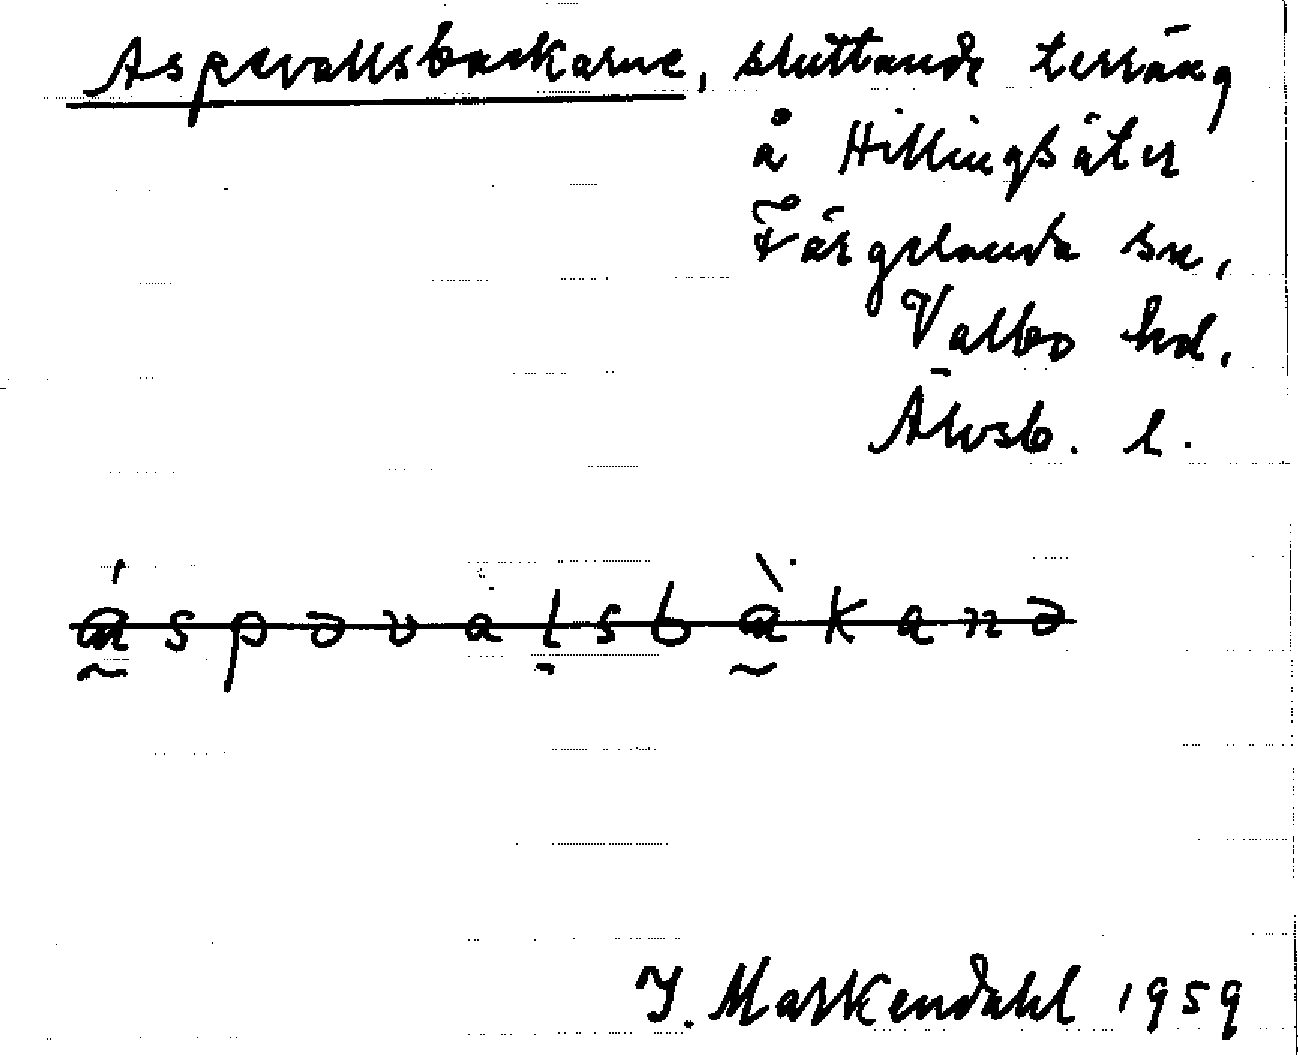 Aspevallsbackarne, sluttande terräng
å Hillingsäter
Färgelanda sn,
Valbo hd.
Älvsb. l.
áspəvalsbàkanə
J. Markendahl 1959